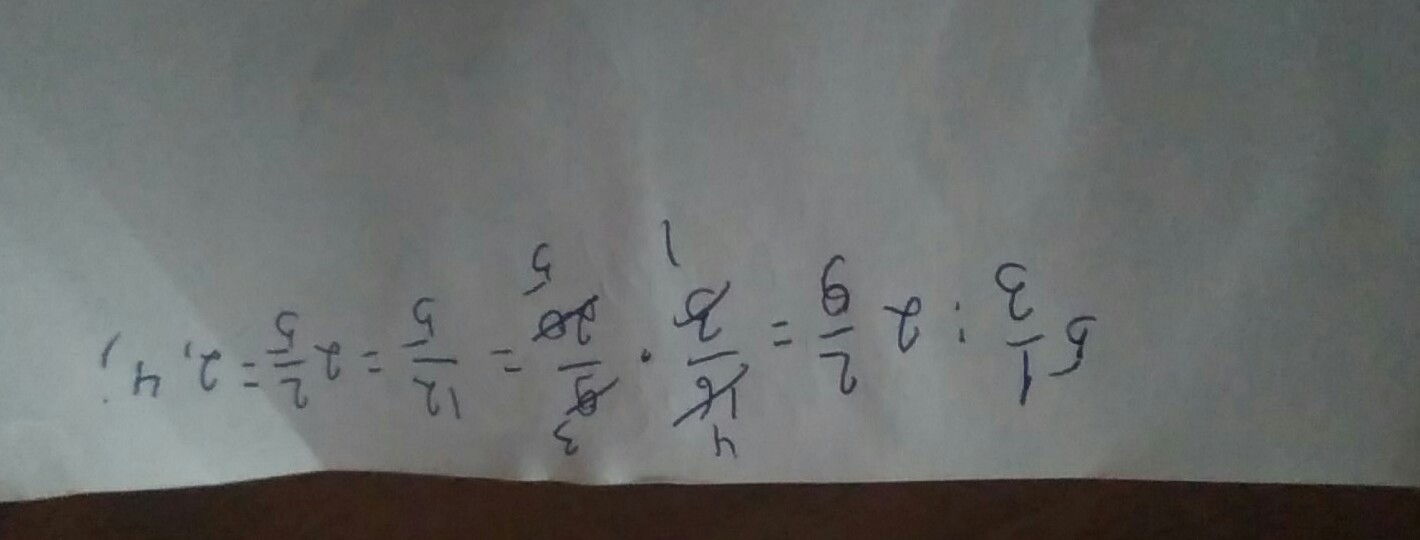 5 1/3 : 2 2/9 = 16/3 · 9/20 = 12/5 = 2 2/5 = 2,4;